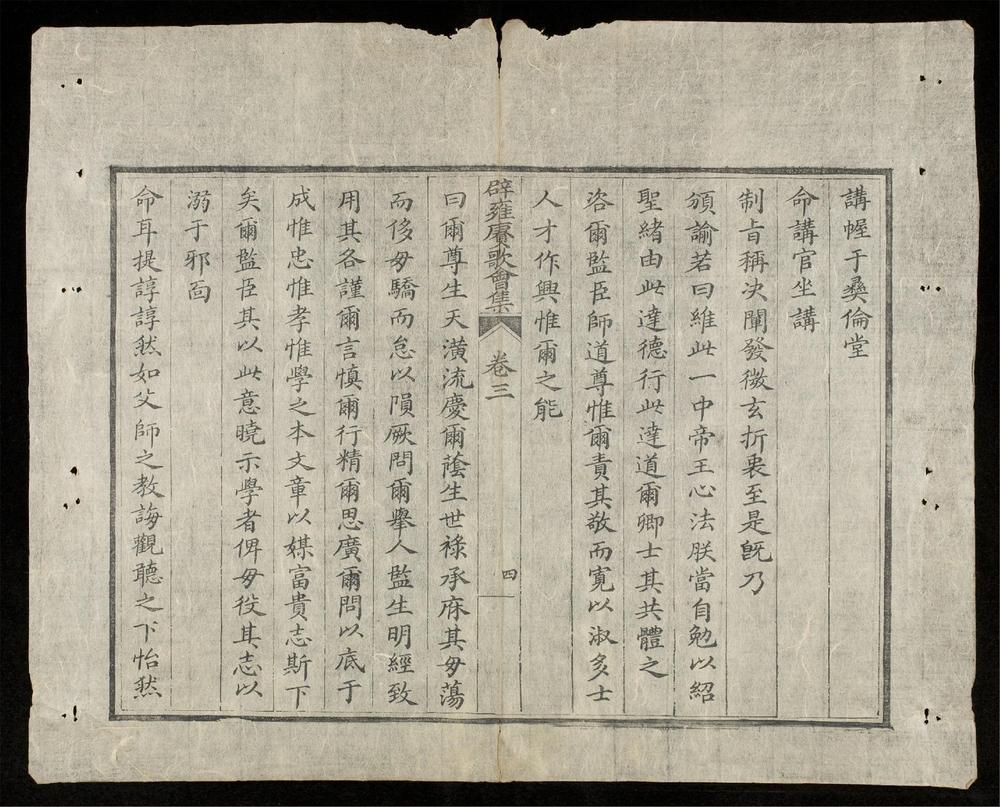 講幄于彞倫堂
命講官坐講
制旨稱決闡發微玄折衷至是旣乃
頒諭若曰維此一中帝王心法朕當自勉以紹
聖緒由此達德行此達道爾卿士其共體之
咨爾監臣師道尊惟爾責其敬而寬以淑多士
人才作興惟爾之能
辟雍賡歌會集
卷三
四
曰爾尊生天潢流慶爾蔭生世祿承庥其毋蕩
而侈毋驕而怠以隕厥問爾舉人監生明經致
用其各謹爾言慎爾行精爾思廣爾問以底于
成惟忠惟孝惟學之本文章以媒富貴志斯下
矣爾監臣其以此意曉示學者俾毋役其志以
溺于邪面
命耳提諄諄然如父師之教誨觀聽之下怡然